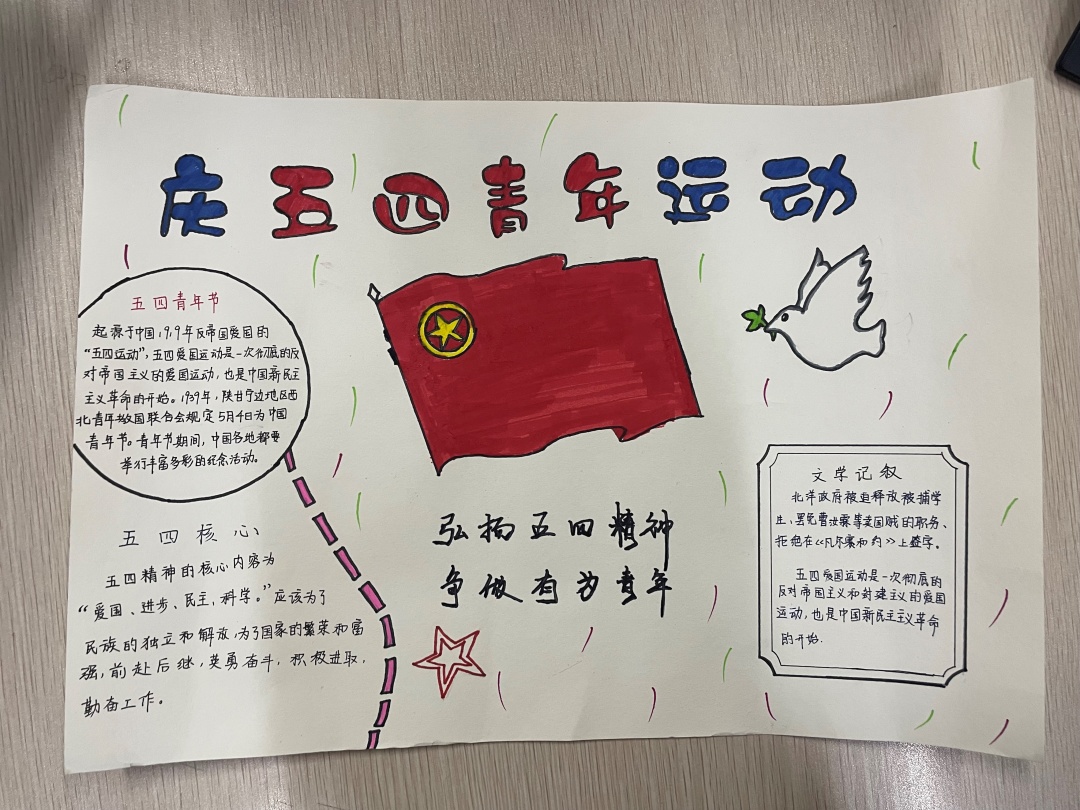 庆五四青年运动
五四青年节
起源于中国1919年反帝国爱国的
“五四运动”，五四爱国运动是一次彻底的反
对帝国主义的爱国运动，也是中国新民主
主义革命的开始。1939年，陕甘宁边地区西
北青年救国联合会规定5月4日为中国
青年节。青年节期间，中国各地都要
举行丰富多彩的纪念活动。
五四核心
五四精神的核心内容为
“爱国、进步、民主、科学。”应该为了
民族的独立和解放，为了国家的繁荣和富
强，前赴后继，英勇奋斗，积极进取，
勤奋工作。
弘扬五四精神
争做有为青年
文学记叙
北洋政府被迫释放被捕学
生、罢免曹汝霖等卖国贼的职务、
拒绝在《凡尔赛和约》上签字。
五四爱国运动是一次彻底的
反对帝国主义和封建主义的爱国
运动，也是中国新民主主义革命
的开始.